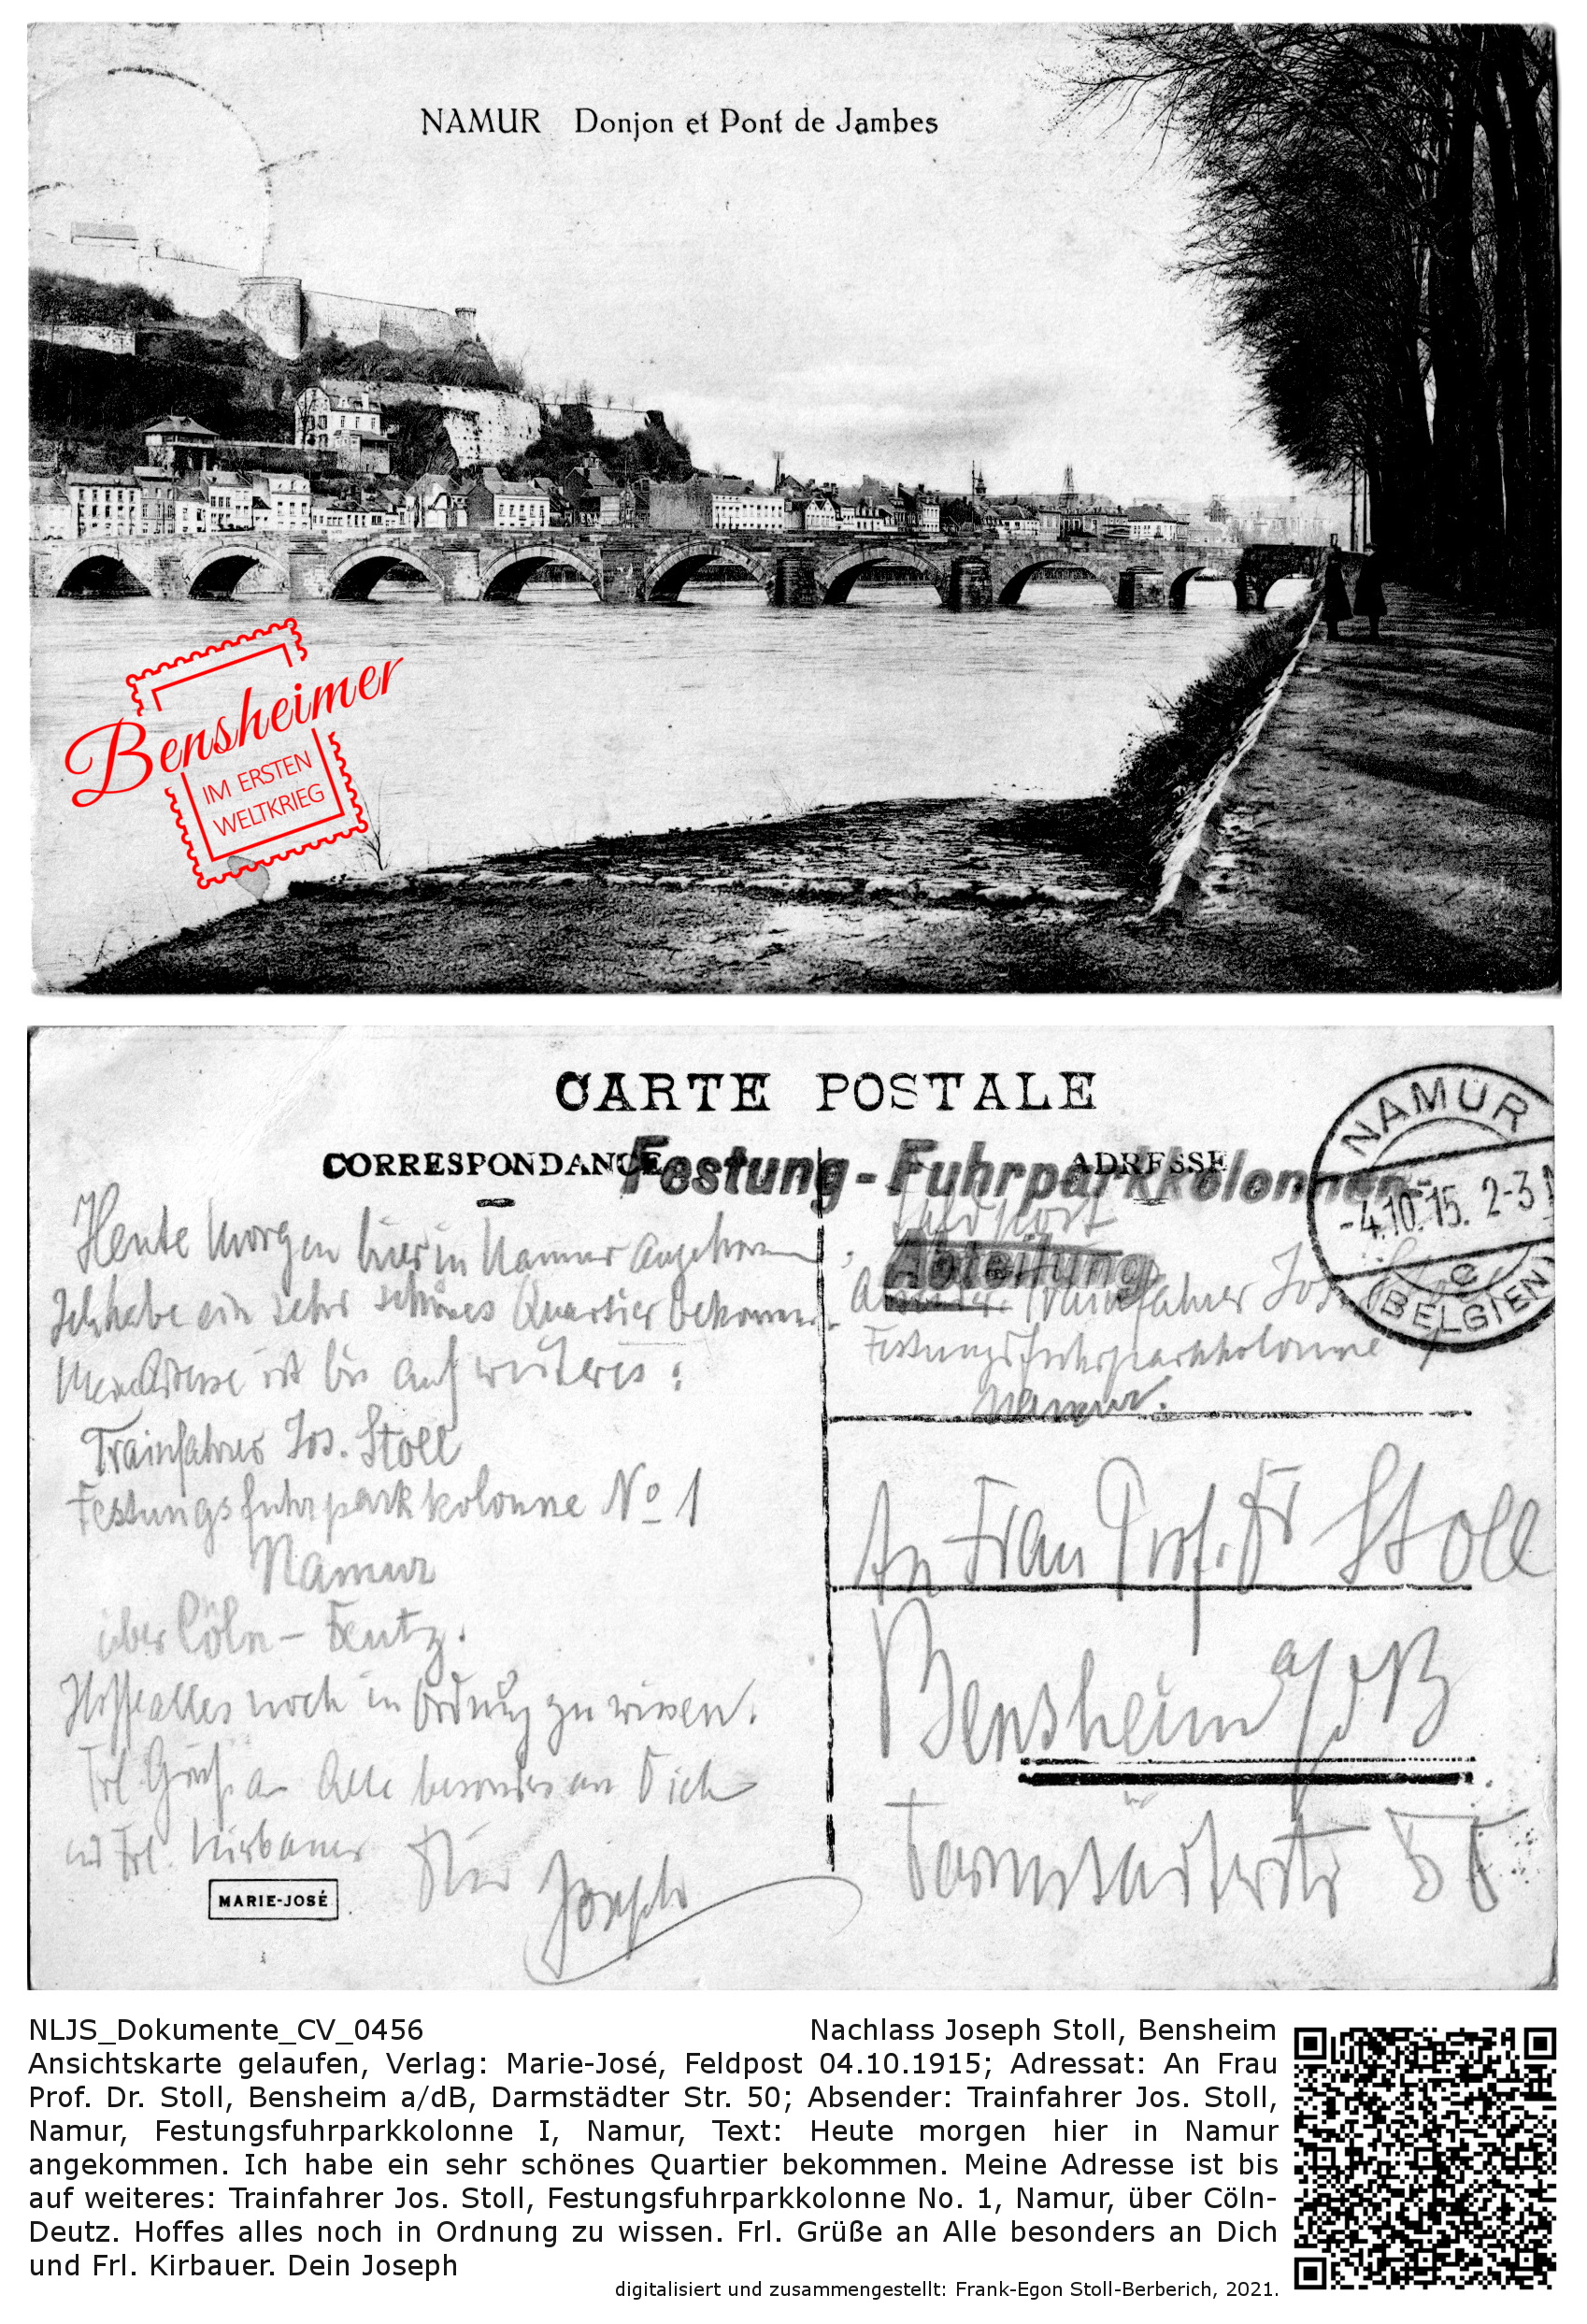 NAMUR Donjon et Pont de Jambes
Bensheimer
IM ERSTEN
WELTKRIEG
CARTE POSTALE
CORRESPONDANCE
ADRESSE
Festung-Fuhrparkkolonnen-
Abteilung
NAMUR
-4.10.15. 2-3 N
e
(BELGIEN)
Heute Morgen hier in Namur angekommen.
Ich habe ein sehr schönes Quartier bekommen.
Meine Adresse ist bis auf weiteres:
Trainfahrer Jos. Stoll
Festungsfuhrparkkolonne No 1
Namur
über Cöln-Deutz.
Hoffe alles noch in Ordnung zu wissen.
Frl. Grüße an Alle besonders an Dich
und Frl. Kirbauer Dein Joseph
MARIE-JOSÉ
Feldpost
Trainfahrer Jos.
Festungsfuhrparkkolonne
Namur.
An Frau Prof. Dr Stoll
Bensheim a/dB
Darmstädterstr
NLJS_Dokumente_CV_0456 Nachlass Joseph Stoll, Bensheim
Ansichtskarte gelaufen, Verlag: Marie-José, Feldpost 04.10.1915; Adressat: An Frau
Prof. Dr. Stoll, Bensheim a/dB, Darmstädter Str. 50; Absender: Trainfahrer Jos. Stoll,
Namur, Festungsfuhrparkkolonne I, Namur, Text: Heute morgen hier in Namur
angekommen. Ich habe ein sehr schönes Quartier bekommen. Meine Adresse ist bis
auf weiteres: Trainfahrer Jos. Stoll, Festungsfuhrparkkolonne No. 1, Namur, über Cöln-
Deutz. Hoffes alles noch in Ordnung zu wissen. Frl. Grüße an Alle besonders an Dich
und Frl. Kirbauer. Dein Joseph
digitalisiert und zusammengestellt: Frank-Egon Stoll-Berberich, 2021.